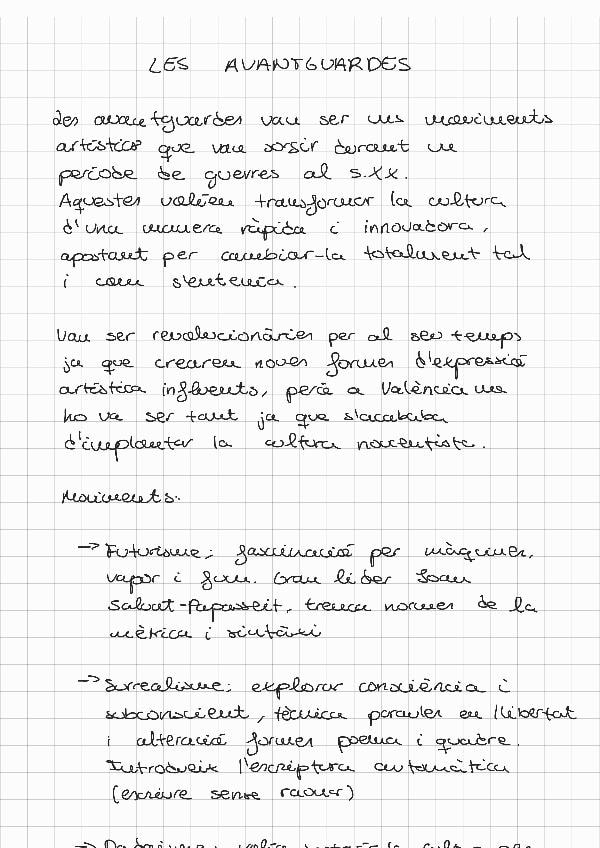 LES AVANTGUARDES
Les avantguardes van ser uns moviments
artístics que van sorgir durant un
període de guerres al s.XX.
Aquestes volien transformar la cultura
d'una manera ràpida i innovadora,
apostant per canviar-la totalment tal
i com s'entenia.
Van ser revolucionàries per al seu temps
ja que crearen noves formes d'expressió
artística influents, però a València no
ho va ser tant ja que s'acababa
d'implantar la cultura noucentista.
Moviments:
→ Futurisme: fascinació per màquines,
vapor i fum. Gran líder Joan
Salvat-Papasseit, trenca normes de la
mètrica i sintàxi
→ Surrealisme: explorar consciència i
subconscient, tècnica paraules en llibertat
i alteració formes poema i quadre.
Introdueix l'escriptura automàtica
(escriure sense raonar)